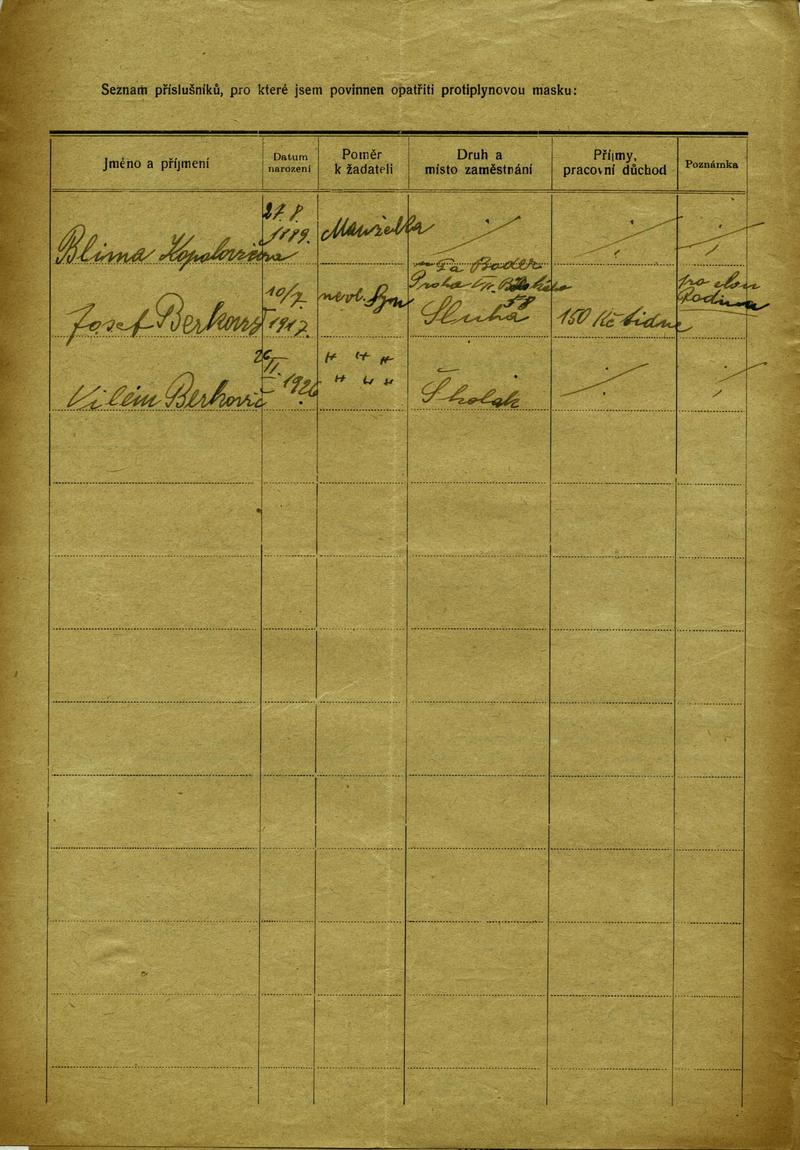 Seznam příslušníků, pro které jsem povinnen opatřiti protiplynovou masku:
Jméno a příjmení
Datum narození
Poměr k žadateli
Druh a místo zaměstnání
Příjmy, pracovní důchod
Poznámka
Blima Kopolovičova
Manželka
Josef Berkovič
10/7. 1917.
nevl. Syn
Fa Bader
Praha
Sluha
150 Kč tidne
pro
Rodinu
Vilém Berkovič
1926
" " "
" " "
Školák